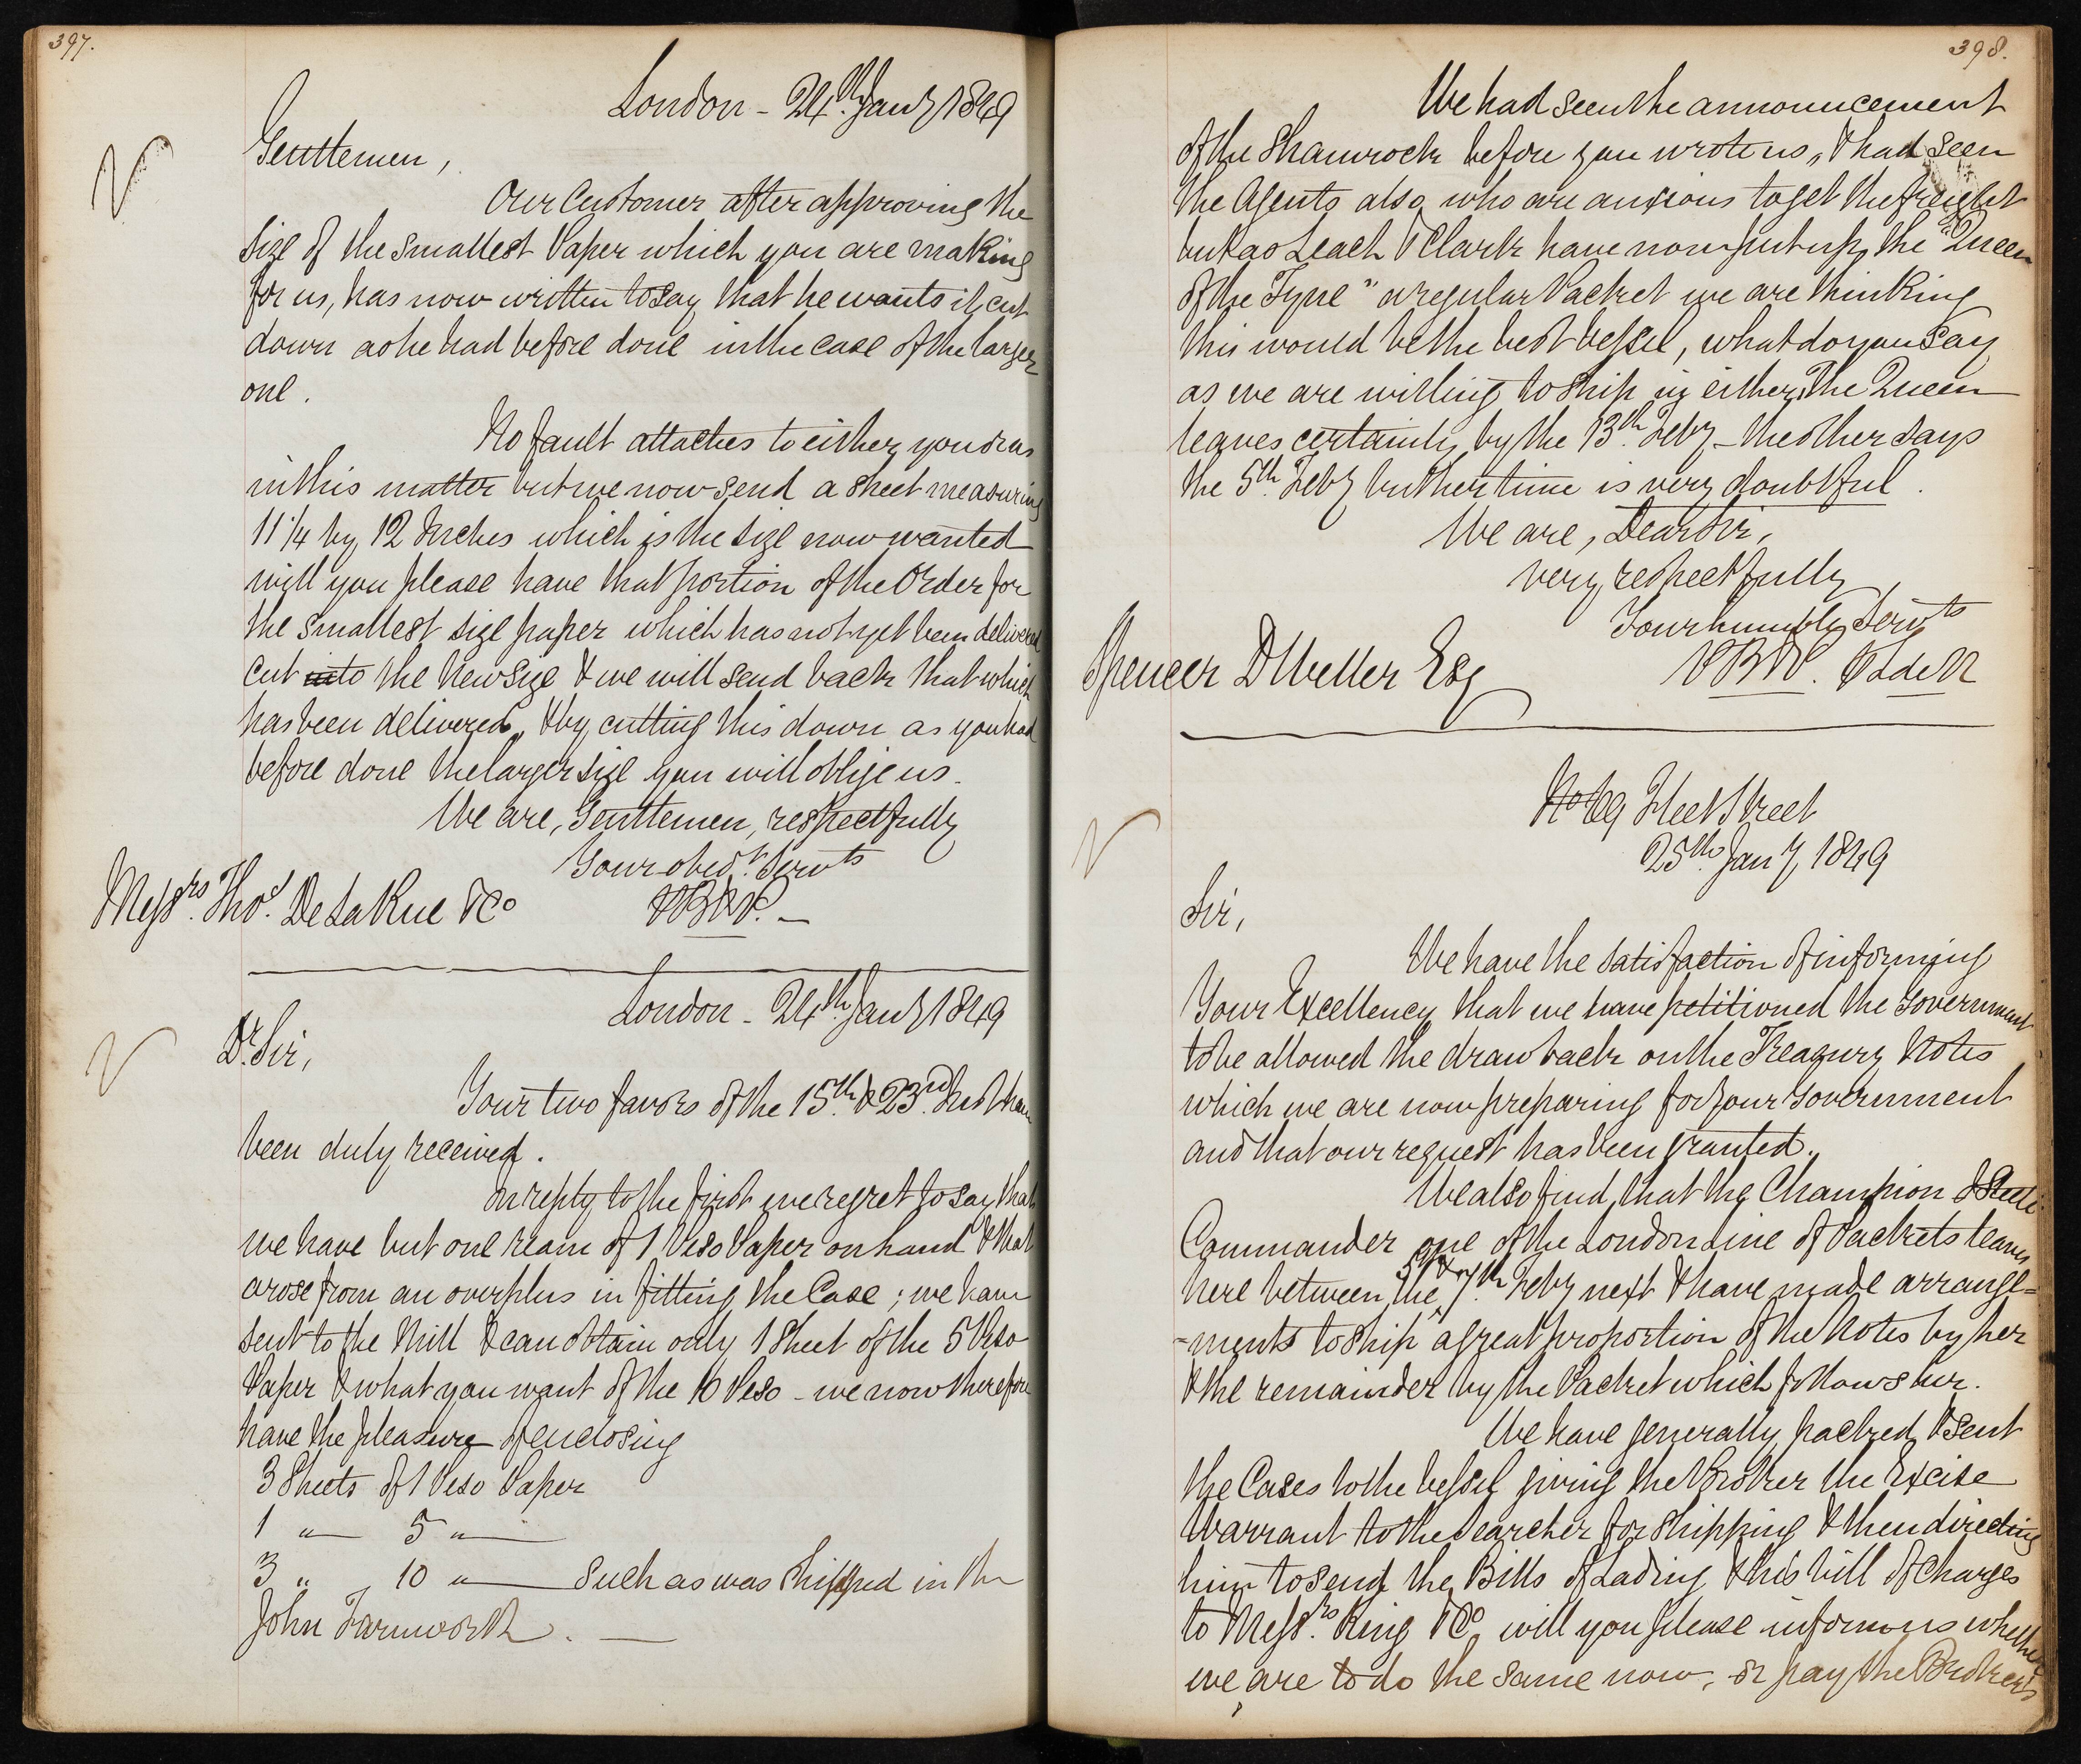 397.
London - 24th. Jany 1849
Gentlemen,
Our Customer after approving the
size of the smallest Paper which you are making
for us, has now written to say that he wants it cut
down as he had before done in the case of the larger
one.
No fault attaches to either you or us
in this matter but we now send a sheet measuring
11 1/4 by 12 Inches which is the size now wanted
will you please have that portion of the Order for
the smallest size paper which has not yet been delivered
cut into the New size & we will send back that which
has been delivered, & by cutting this down as you had
before done the larger size you will oblige us.
We are, Gentlemen, respectfully
Your obedt. Servts
Messrs. Thos. De La Rue & Co
PB&P. —
London - 24th. Jany 1849
Dr. Sir,
Your two favors of the 15th. & 23rd. Inst have
been duly received.
In reply to the first we regret to say that
we have but one ream of 1 Peso Paper on hand & that
arose from an overplus in fitting the Case; we have
sent to the Mill & can obtain only 1 Sheet of the 5 Peso
Paper & what you want of the 10 Peso - we now therefore
have the pleasure of enclosing
3 Sheets of 1 Peso Paper
1 " — 5 " —
3 " 10 " — Such as was shipped in the
John Farnworth. —
398.
We had seen the announcement
of the Shamrock before you wrote us, & had seen
the Agents also who are anxious to get the freight
but as Leach & Clark have now put up the "Queen
of the Tyne" a regular Packet we are thinking
this would be the best vessel, what do you say
as we are willing to ship in either, the Queen
leaves certainly by the 13th. Feby - the other says
the 5th. Feby but her time is very doubtful.
We are, Dear Sir,
very respectfully
Your humble Servts
Spencer D Weller Esq
PB&P.
No 69 Fleet Street
25th Jany 1849
Sir,
We have the satisfaction of informing
Your Excellency that we have petitioned the Government
to be allowed the drawback on the Treasury Notes
which we are now preparing for your Government
and that our request has been granted.
We also find that the Champion
Commander one of the London Line of Packets leaves
here between the 5th & 7th. Feby next & have made arrange=
=ments to ship a great proportion of the Notes by her
& the remainder by the Packet which follows her.
We have generally packed & sent
the Cases to the vessel giving the Broker the Excise
Warrant to the Searcher for shipping & then directing
him to send the Bills of Lading & his bill of Charges
to Messrs. King & Co. will you please inform us whether
we are to do the same now, or pay the Broker's